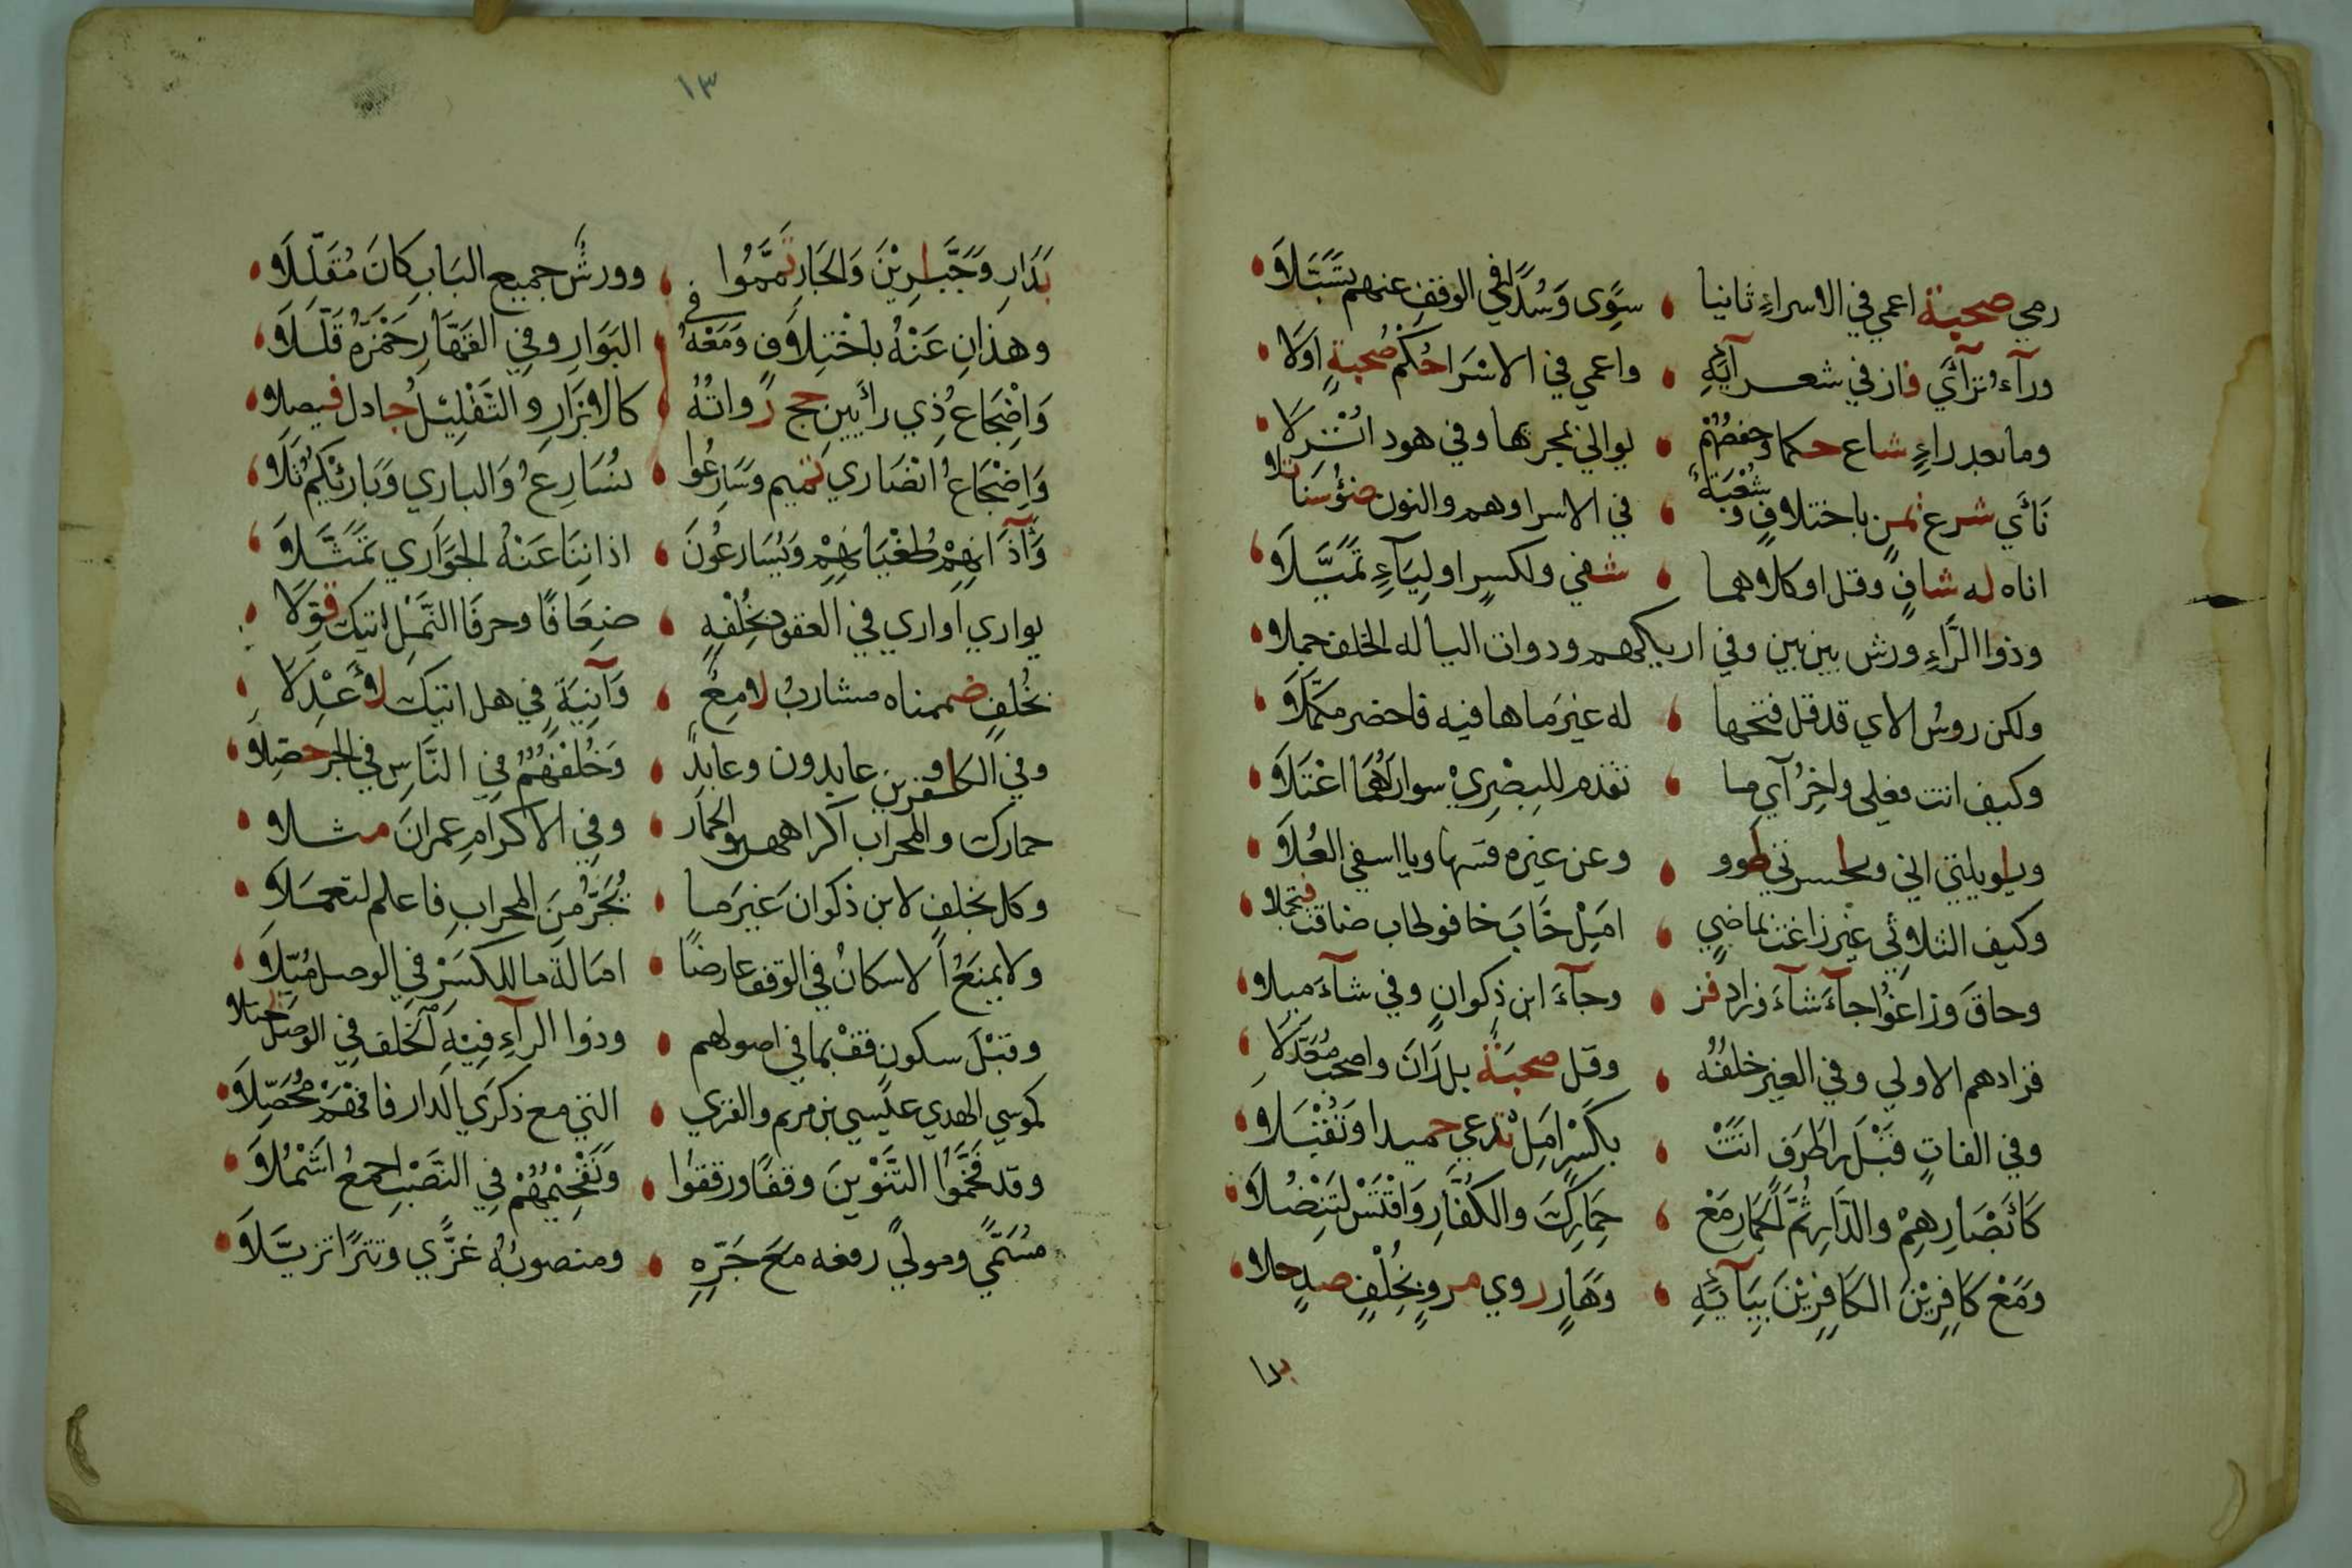 رمي صحبة اعمي في الاسراءِ ثانيا ، سِوًى وَسُدًى في الوقفِ عنهم تسَبَّلَا
وراءُ تراءَي فاز في شعرائه ، واعمي في الاسْرَا حُكمُ صُحبةٍ اوّلا
وما بعد راءٍ شاع حكما وحفصُهُمْ ، يوالي بمجرها وفي هود انزلا
نَأي شرع يمنٍ باختلافٍ وشُعْبَةٌ ، في الاسرا وهم والنون ضوْءُ سَنا تلا
اناه له شافٍ وقل او كلاهما ، شفي ولكسرٍ او لِيَاءٍ تمَيَّلَا
وذوا الرَّاءِ ورش بين بين وفي اريكهم وذوات اليا له الخلف جملا
ولكن روسُ الاي قد قل فتحها ، له غيرَ ما ها فيه فاحضر مكمَّلَا
وكيف اتت فعلي واخِرُ آي ما ، تقدم للبِصْرِيْ سوا راهُمَا اعْتَلَا
ويا ويلتي اني ويا حسرتي طووا ، وعن غيره قسها ويا اسفي العُلَا
وكيف الثلاثي غير زاغت بماضيٍ ، امِلْ خَابَ خافو طاب ضاقت فتجملا
وحاقَ وزاغوا جاءَ شاءَ وزاد فز ، وجاءَ ابن ذكوانٍ وفي شاءَ ميلا
فزادهم الاولي وفي الغير خلفُهُ ، وقل صحبَةٌ بل رَانَ واصحب مُعَدَّلَا
وفي الفاتٍ قَبْلَ را طَرَفٍ اتَتْ ، بكَسْرٍ امِلْ تدعي حميدا وتُقْبَلَا
كَاَبْصَارِهِمْ والدَّارِ ثُمَّ الحِمَارِ مَعْ ، حِمَارِكَ والكُفَّارِ وَاقْتَسْ لِتَنْضُلَا
وَمَعْ كَافِرِيْنَ الكَافِرِيْنَ بِيَائِهِ ، وَهَارٍ روي مروٍ بخُلْفٍ صدٍ حلا
بدا
١٣
بَدَارِ وَجَبَّارِيْنَ وَالجَارِ تَمَّمُوا ، وورشٌ جميعَ البَابِ كَانَ مُقَلِّلَا
وهذانِ عَنْهُ باخْتِلَافٍ وَمَعْهُ في ، البَوَارِ وفي القَهَّارِ حَمْزَةُ قَلَّلَا
وَاِضْجَاعُ ذِي رائَيين حج رُواتُهُ ، كالابْرَارِ والتَقْلِيْلُ جادل فيصلا
وَاِضْجَاعُ انْصَارِي تميم وسَارِعُوا ، نُسَارِعُ وَالباري وَبَارئْكُمُ تَلَا
وَآذَانِهِمْ طُغْيَانِهِمْ وَيُسَارعُونَ ، اذانِنَا عَنْهُ الجَوَاري تَمَثَّلَا
يواري اواري في العقود بخُلْفِهِ ، ضِعَافًا وحرفَا النَّمْلِ اتيك قوّلَا
بخُلفٍ ضممناه مشاربُ لامِعٌ ، وَآنِيَةٍ في هل اتيك لِأَعْدِلَا
وفي الكافرون عابدون وعابدٌ ، وَخُلْفُهُمُ في النَّاسِ في الجر حصِّلَا
حمارك والمحراب اكراههن والحمار ، وفي الاكرامِ عمرانَ مثلا
وكل بخلفٍ لابن ذكوانَ غيرَ ما ، يُجَرُّ مِنَ المحرابِ فاعلم لتعمَلَا
ولا يمنَعُ الاسكانُ في الوقف عارضًا ، امَالَةَ ما للكسْرِ في الوصل مُيِّلَا
وقبْلَ سكونٍ قفْ بما في اصولهم ، وذوا الراءِ فِيْهِ الخلف في الوصل يجتلا
كموسي الهدي عيسي بن مريم والقري ، التي مع ذكرَي الدار فافْهَمْ مُحَصِّلَا
وقد فَخَّمُوا التَّنْوِينَ وقفًا ورققوا ، وَتَفْخِيْمُهُمْ فِي النَصْبِ اجمعُ اشْمُلَا
مُسَمًّي ومولًي رفعه مَعَ جَرِّهِ ، ومنصوبُهُ غزًّي وتترًا تزيّلَا